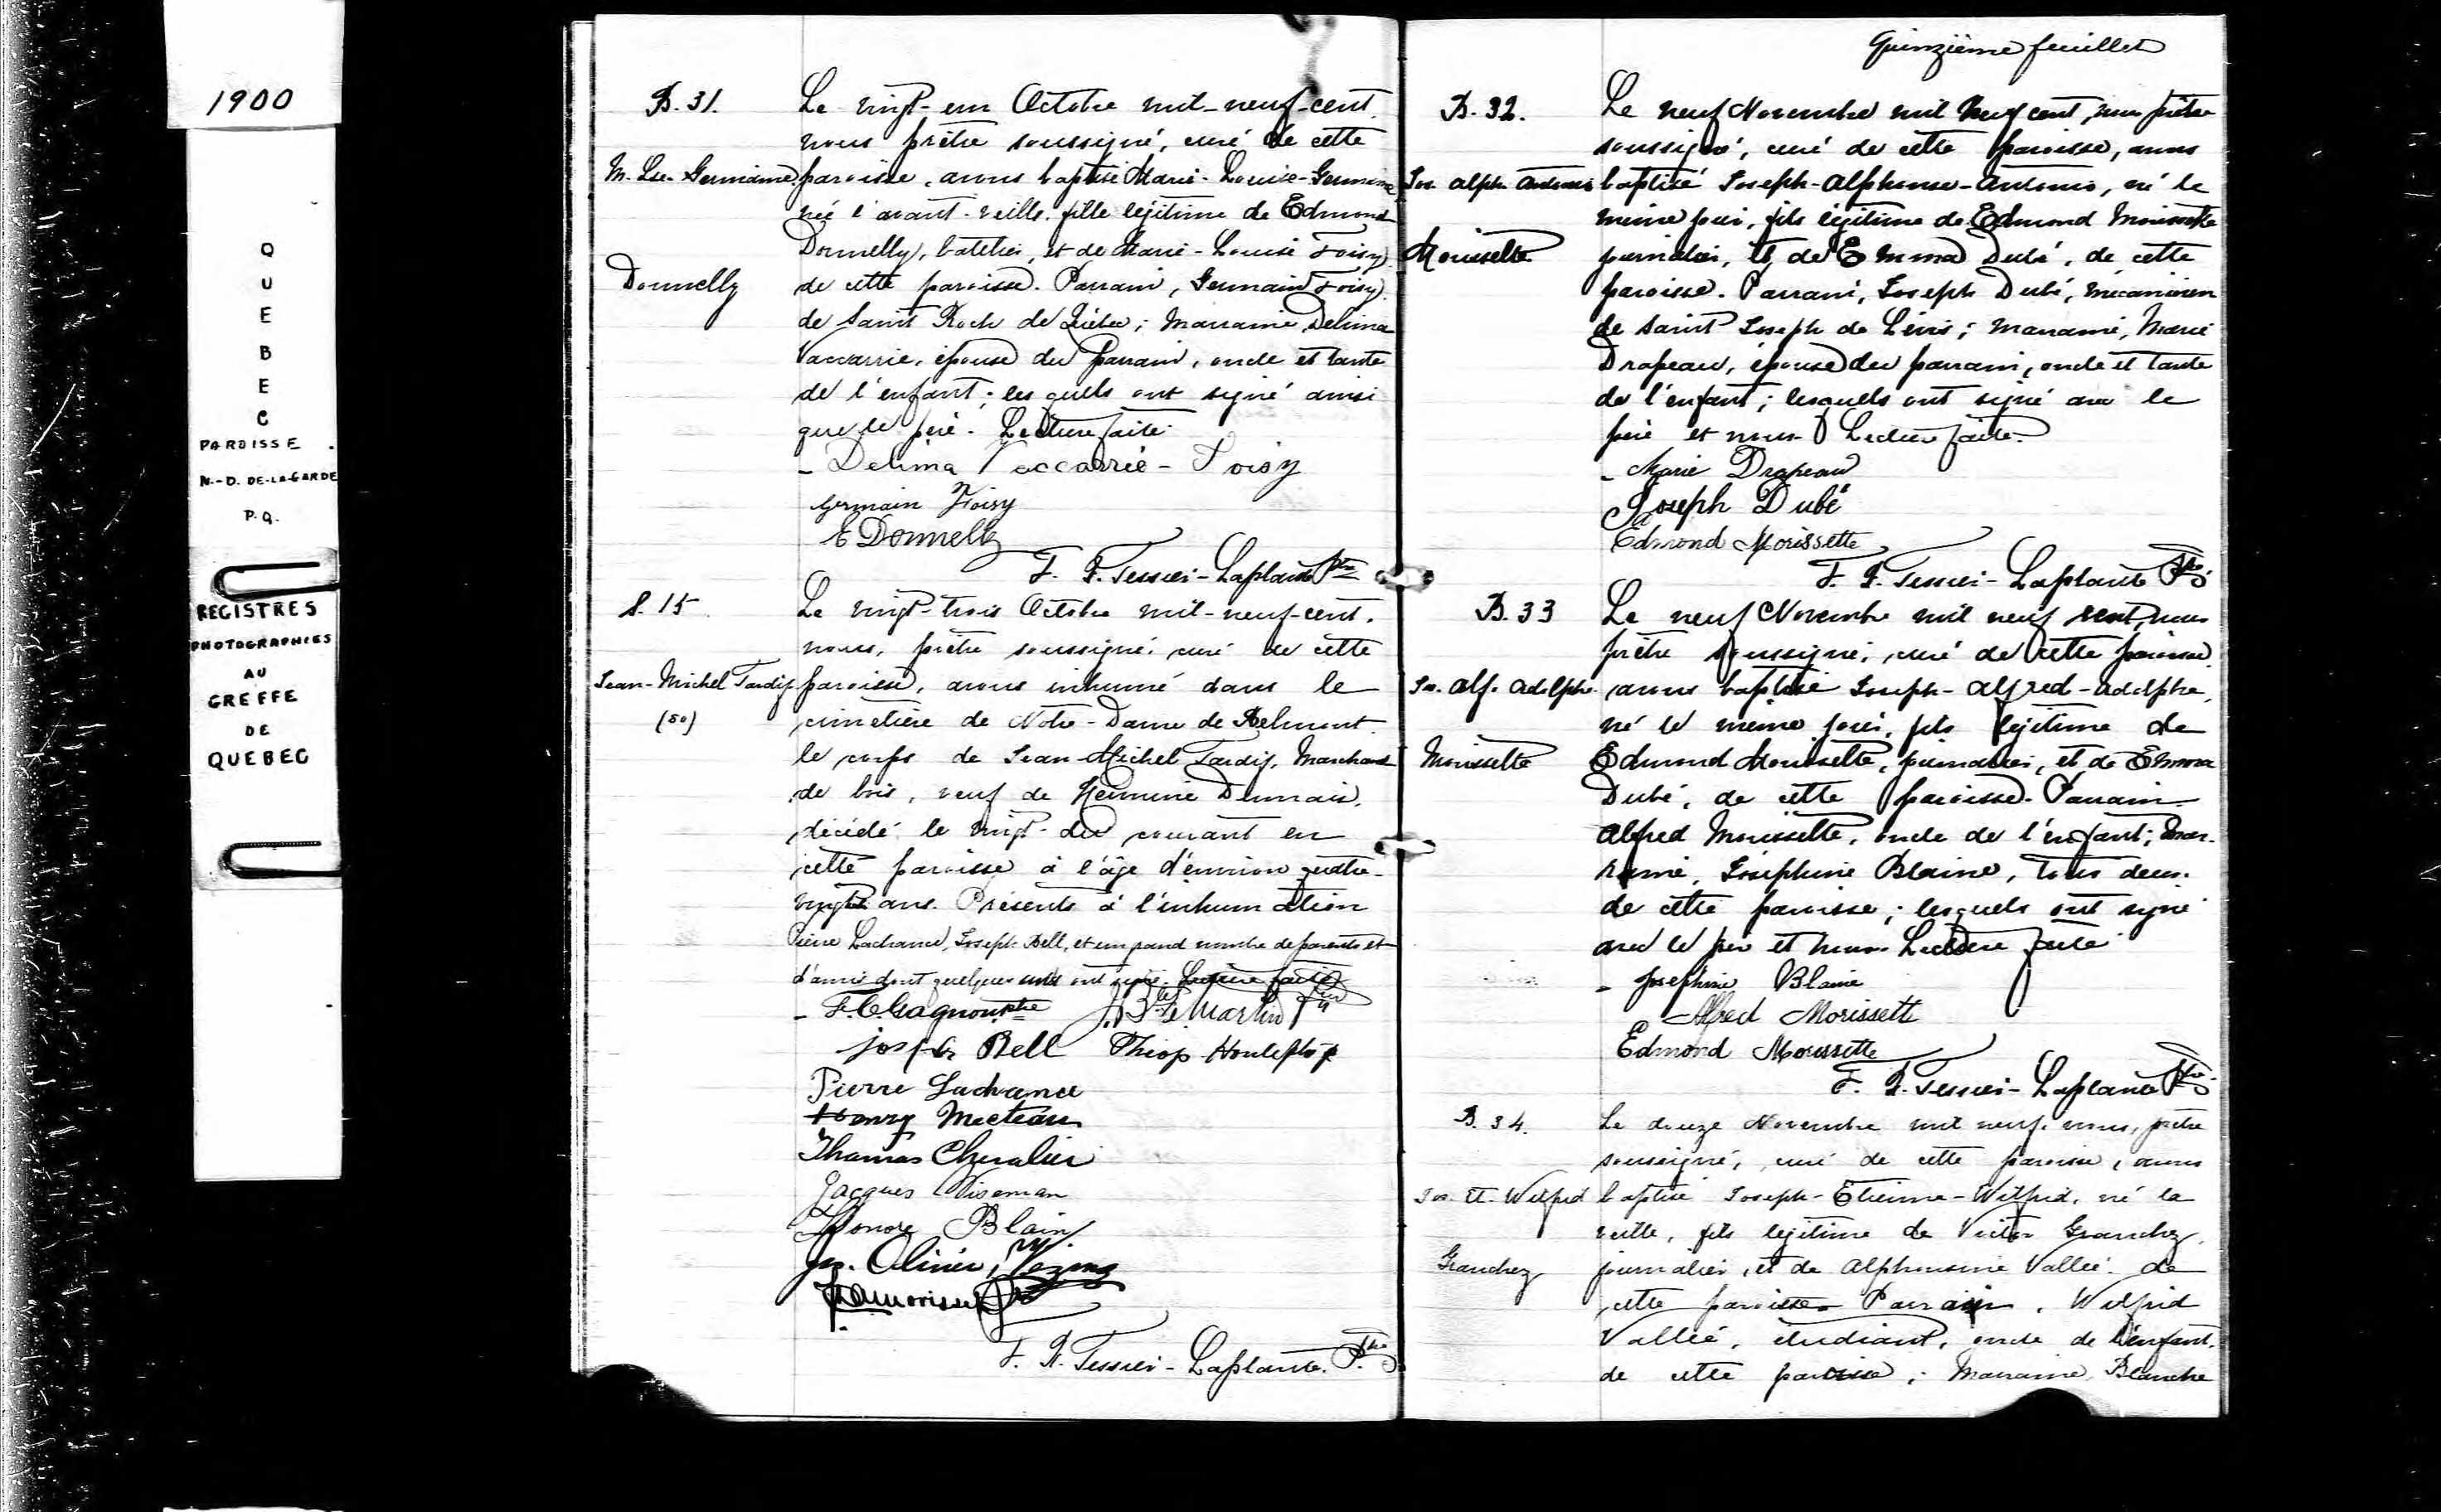 1900
Q
U
E
B
E
C
PAROISSE
N.-D. DE-LA-GARDE
P.Q.
REGISTRES
PHOTOGRAPHIES
AU
GREFFE
DE
QUEBEC
B. 31.
M. Lse. Germaine
Donnelly
Le vingt-un Octobre mil-neuf-cent,
nous prêtre soussigné, curé de cette
paroisse, avons baptisé Marie-Louise-Germaine
née l'avant-veille, fille légitime de Edmond
Donnelly, batelier, et de Marie-Louise Foisy
de cette paroisse. Parrain, Germain Foisy
de Saint Roch de Québec; Marraine Delima
Vaccarrie, épouse du parrain, oncle et tante
de l'enfant; les quels ont signé ainsi
que le père. Lecture faite.
- Delima Vaccarrie - Foisy
Germain Foisy
E Donnelly
F. X. Tessier-Laplante Ptre
S. 15
Jean-Michel Tardif
(80)
Le vingt-trois Octobre mil-neuf-cent,
nous, prêtre soussigné, curé de cette
paroisse, avons inhumé dans le
cimetière de Notre-Dame de Belmont
le corps de Jean-Michel Tardif, Marchand
de bois, veuf de Hermine
décédé le vingt- courant en
cette paroisse à l'âge d'environ quatre-
vingts ans. Présents à l'inhumation
Pierre Lachance, Joseph Bell, et un grand nombre de parents et
d'amis dont quelques uns ont signé. Lecture faite
- F. C. Gagnon ptre J. Bte Martin
Joseph Bell Théop Houle ptre
Pierre Lachance
Henry Mecteau
Thomas Chevalier
Jacques Wiseman
Honoré Blain
Jos. Olivier Vézina
Morissette
F. X. Tessier-Laplante. Ptre
Quinzième feuillet
B. 32.
Jos. Alph. Antonio
Morissette
Le neuf Novembre mil neuf cent, nous prêtre
soussigné, curé de cette paroisse, avons
baptisé Joseph-Alphonse-Antonio, né le
même jour, fils légitime de Edmond Morissette
journalier, et de Emma Dubé, de cette
paroisse. Parrain, Joseph Dubé, mécanicien
de Saint Joseph de Lévis; marraine, Marie
Drapeau, épouse du parrain, oncle et tante
de l'enfant; lesquels ont signé avec le
père et nous. Lecture faite.
- Marie Drapeau
Joseph Dubé
Edmond Morissette
F. X. Tessier-Laplante Ptre
B. 33
Jos. Alf. Adolphe
Morissette
Le neuf Novembre mil neuf cent, nous
prêtre soussigné, curé de cette paroisse,
avons baptisé Joseph-Alfred-Adolphe,
né le même jour, fils légitime de
Edmond Morissette, journalier, et de Emma
Dubé, de cette paroisse. Parrain
Alfred Morissette, oncle de l'enfant; Mar-
raine, Joséphine Blaine, tous deux
de cette paroisse; lesquels ont signé
avec le père et nous. Lecture faite
- Josephine Blaine
Alfred Morissette
Edmond Morissette
F. X. Tessier-Laplante Ptre
B. 34.
Jos. Et. Wilfrid
Granchez
Le douze Novembre mil neuf, nous, prêtre
soussigné, curé de cette paroisse, avons
baptisé Joseph-Etienne-Wilfrid, né la
veille, fils légitime de Victor Granchez,
journalier, et de Alphonsine Vallée de
cette paroisse. Parrain, Wilfrid
Vallée, étudiant, oncle de l'enfant,
de cette paroisse; Marraine, Blanche